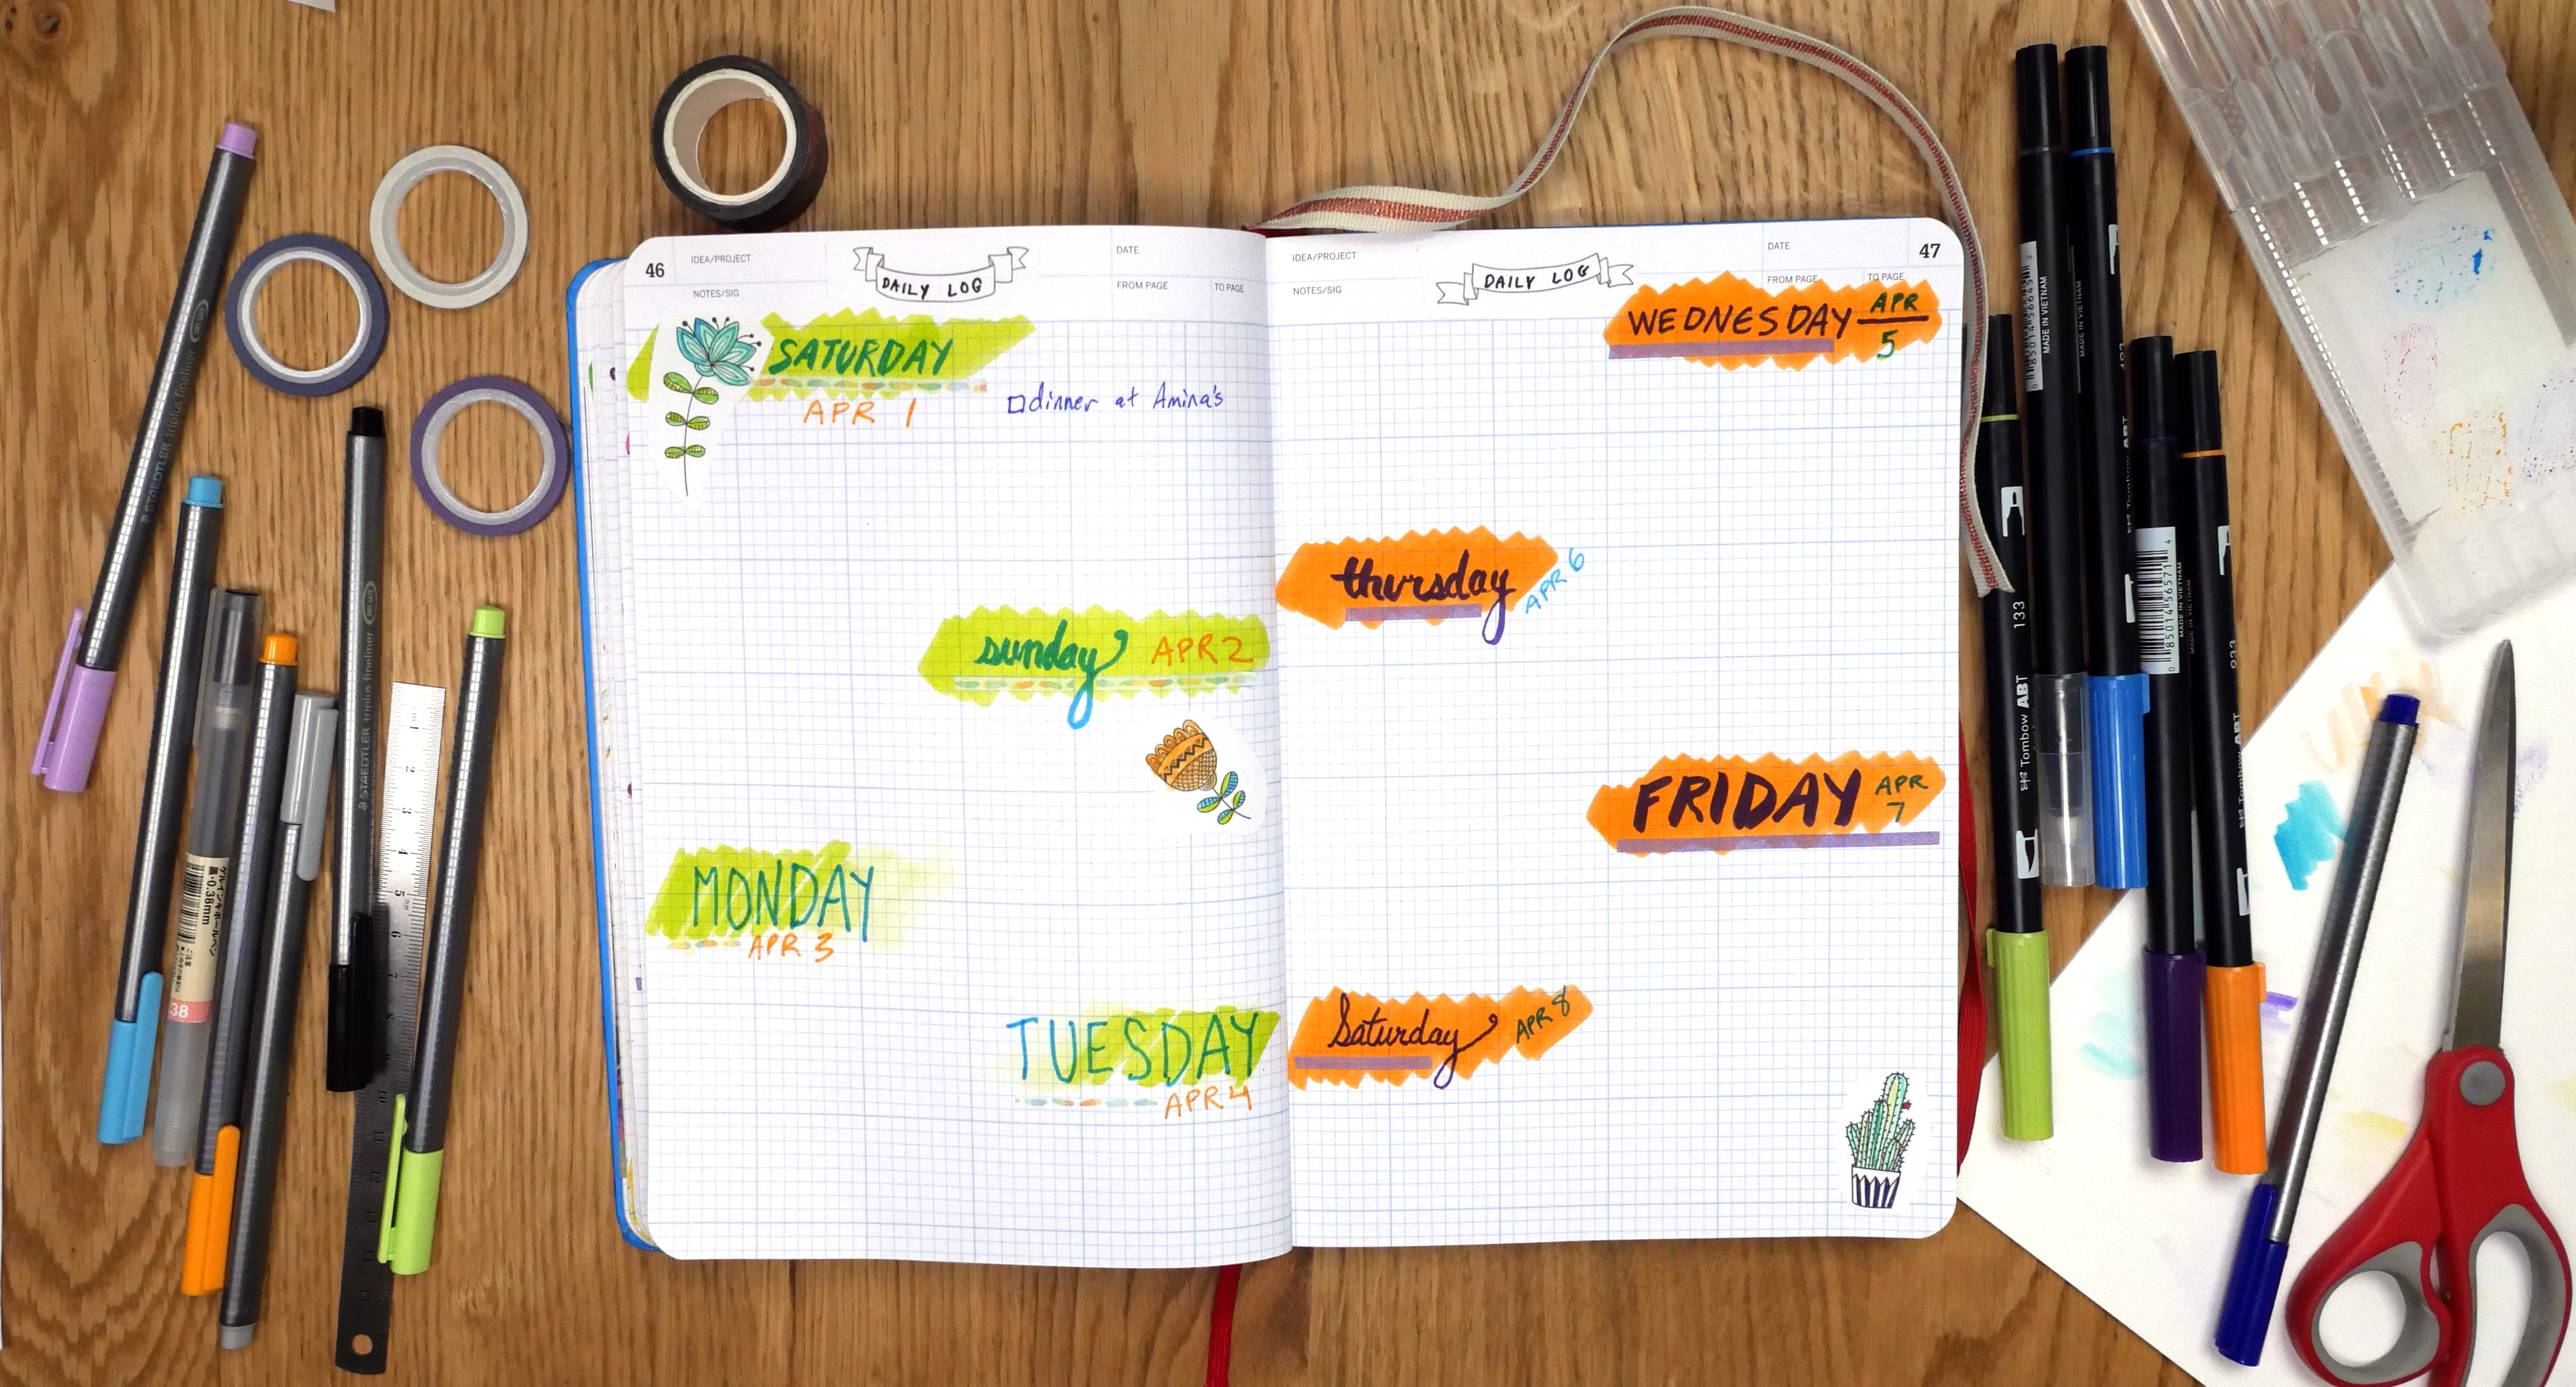 46
IDEA/PROJECT
NOTES/SIG
DAILY LOG
DATE
FROM PAGE
TO PAGE
SATURDAY
APR 1
dinner at Amina's
sunday APR 2
MONDAY
APR 3
TUESDAY
APR 4
IDEA/PROJECT
NOTES/SIG
DAILY LOG
DATE
47
FROM PAGE
TO PAGE
WEDNESDAY APR
5
thursday APR 6
FRIDAY APR
7
Saturday APR 8
STAEDTLER triplus fineliner
STAEDTLER triplus fineliner
0.38mm
38
1
2
3
4
5
6
7
8
9
10
11
12
13
MADE IN VIETNAM
MADE IN VIETNAM
MADE IN VIETNAM
133
Tombow ABT
933
Tombow ABT